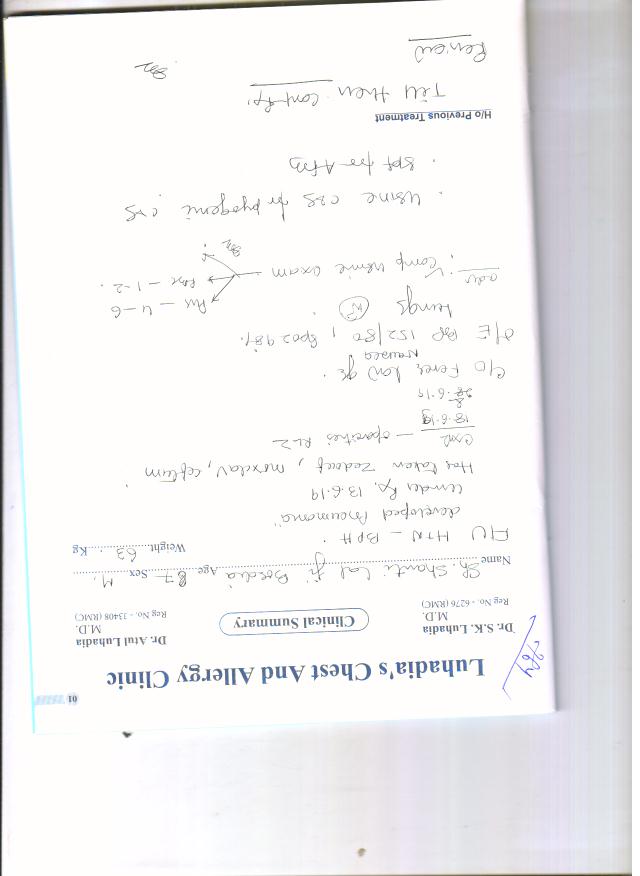 01
Luhadia's Chest And Allergy Clinic
784
Dr. S.K. Luhadia
M.D.
Reg No. - 6276 (RMC)
Clinical Summary
Dr. Atul Luhadia
M.D.
Reg No. - 33408 (RMC)
Name Sh. Shanti Lal ji Bordia Age 87 Sex M.
F/U HTN - BPH. Weight 63 Kg
developed Pneumonia
under Rx. 13.6.19
Has taken Zadocef, moxclav, ceftum
- opacities RLZ
18.6.19
28.6.19
C/O Fever low gr.
Nausea
O/E BP 152/80, Spo2 98%.
Lungs (N)
adv. Comp urine exam
Pus - 4-6
RBC - 1-2.
. Urine C&S for pyogenic C&S
. Spt for AFB
H/o Previous Treatment
Till then cont Rx.
Review